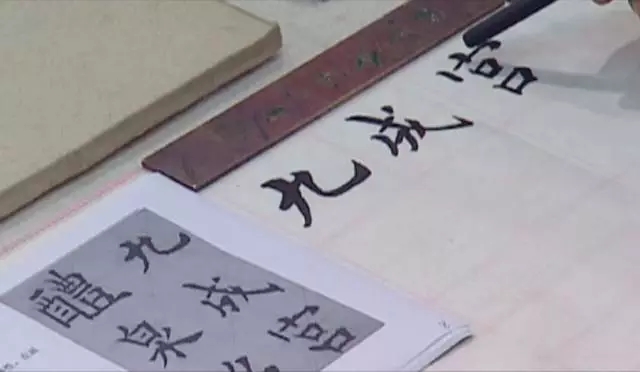 九成宮
九成宮
醴泉